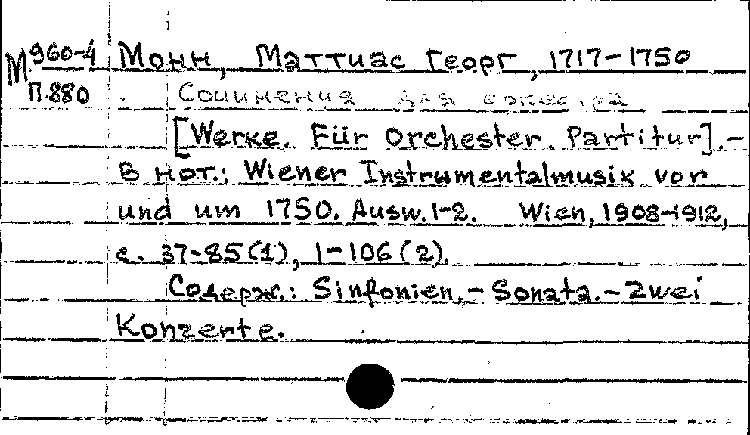 М 960-4 Монн, Маттиас Георг, 1717-1750
П.880 Сочинения для оркестра
[Werke. Für Orchester. Partitur].-
В нот.: Wiener Instrumentalmusik vor
und um 1750. Ausw. 1-2. Wien, 1908-1912,
с. 37-85(1), 1-106(2).
Содерж.: Sinfonien.- Sonata.- Zwei
Konzerte.